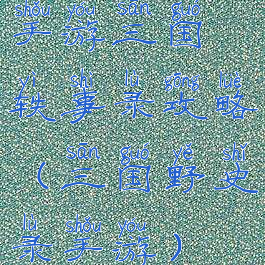 shǒu yóu sān guó
手游三国
yì shì lù gōng lüè
轶事录攻略
sān guó yě shǐ
（三国野史
lù shǒu yóu
录手游）